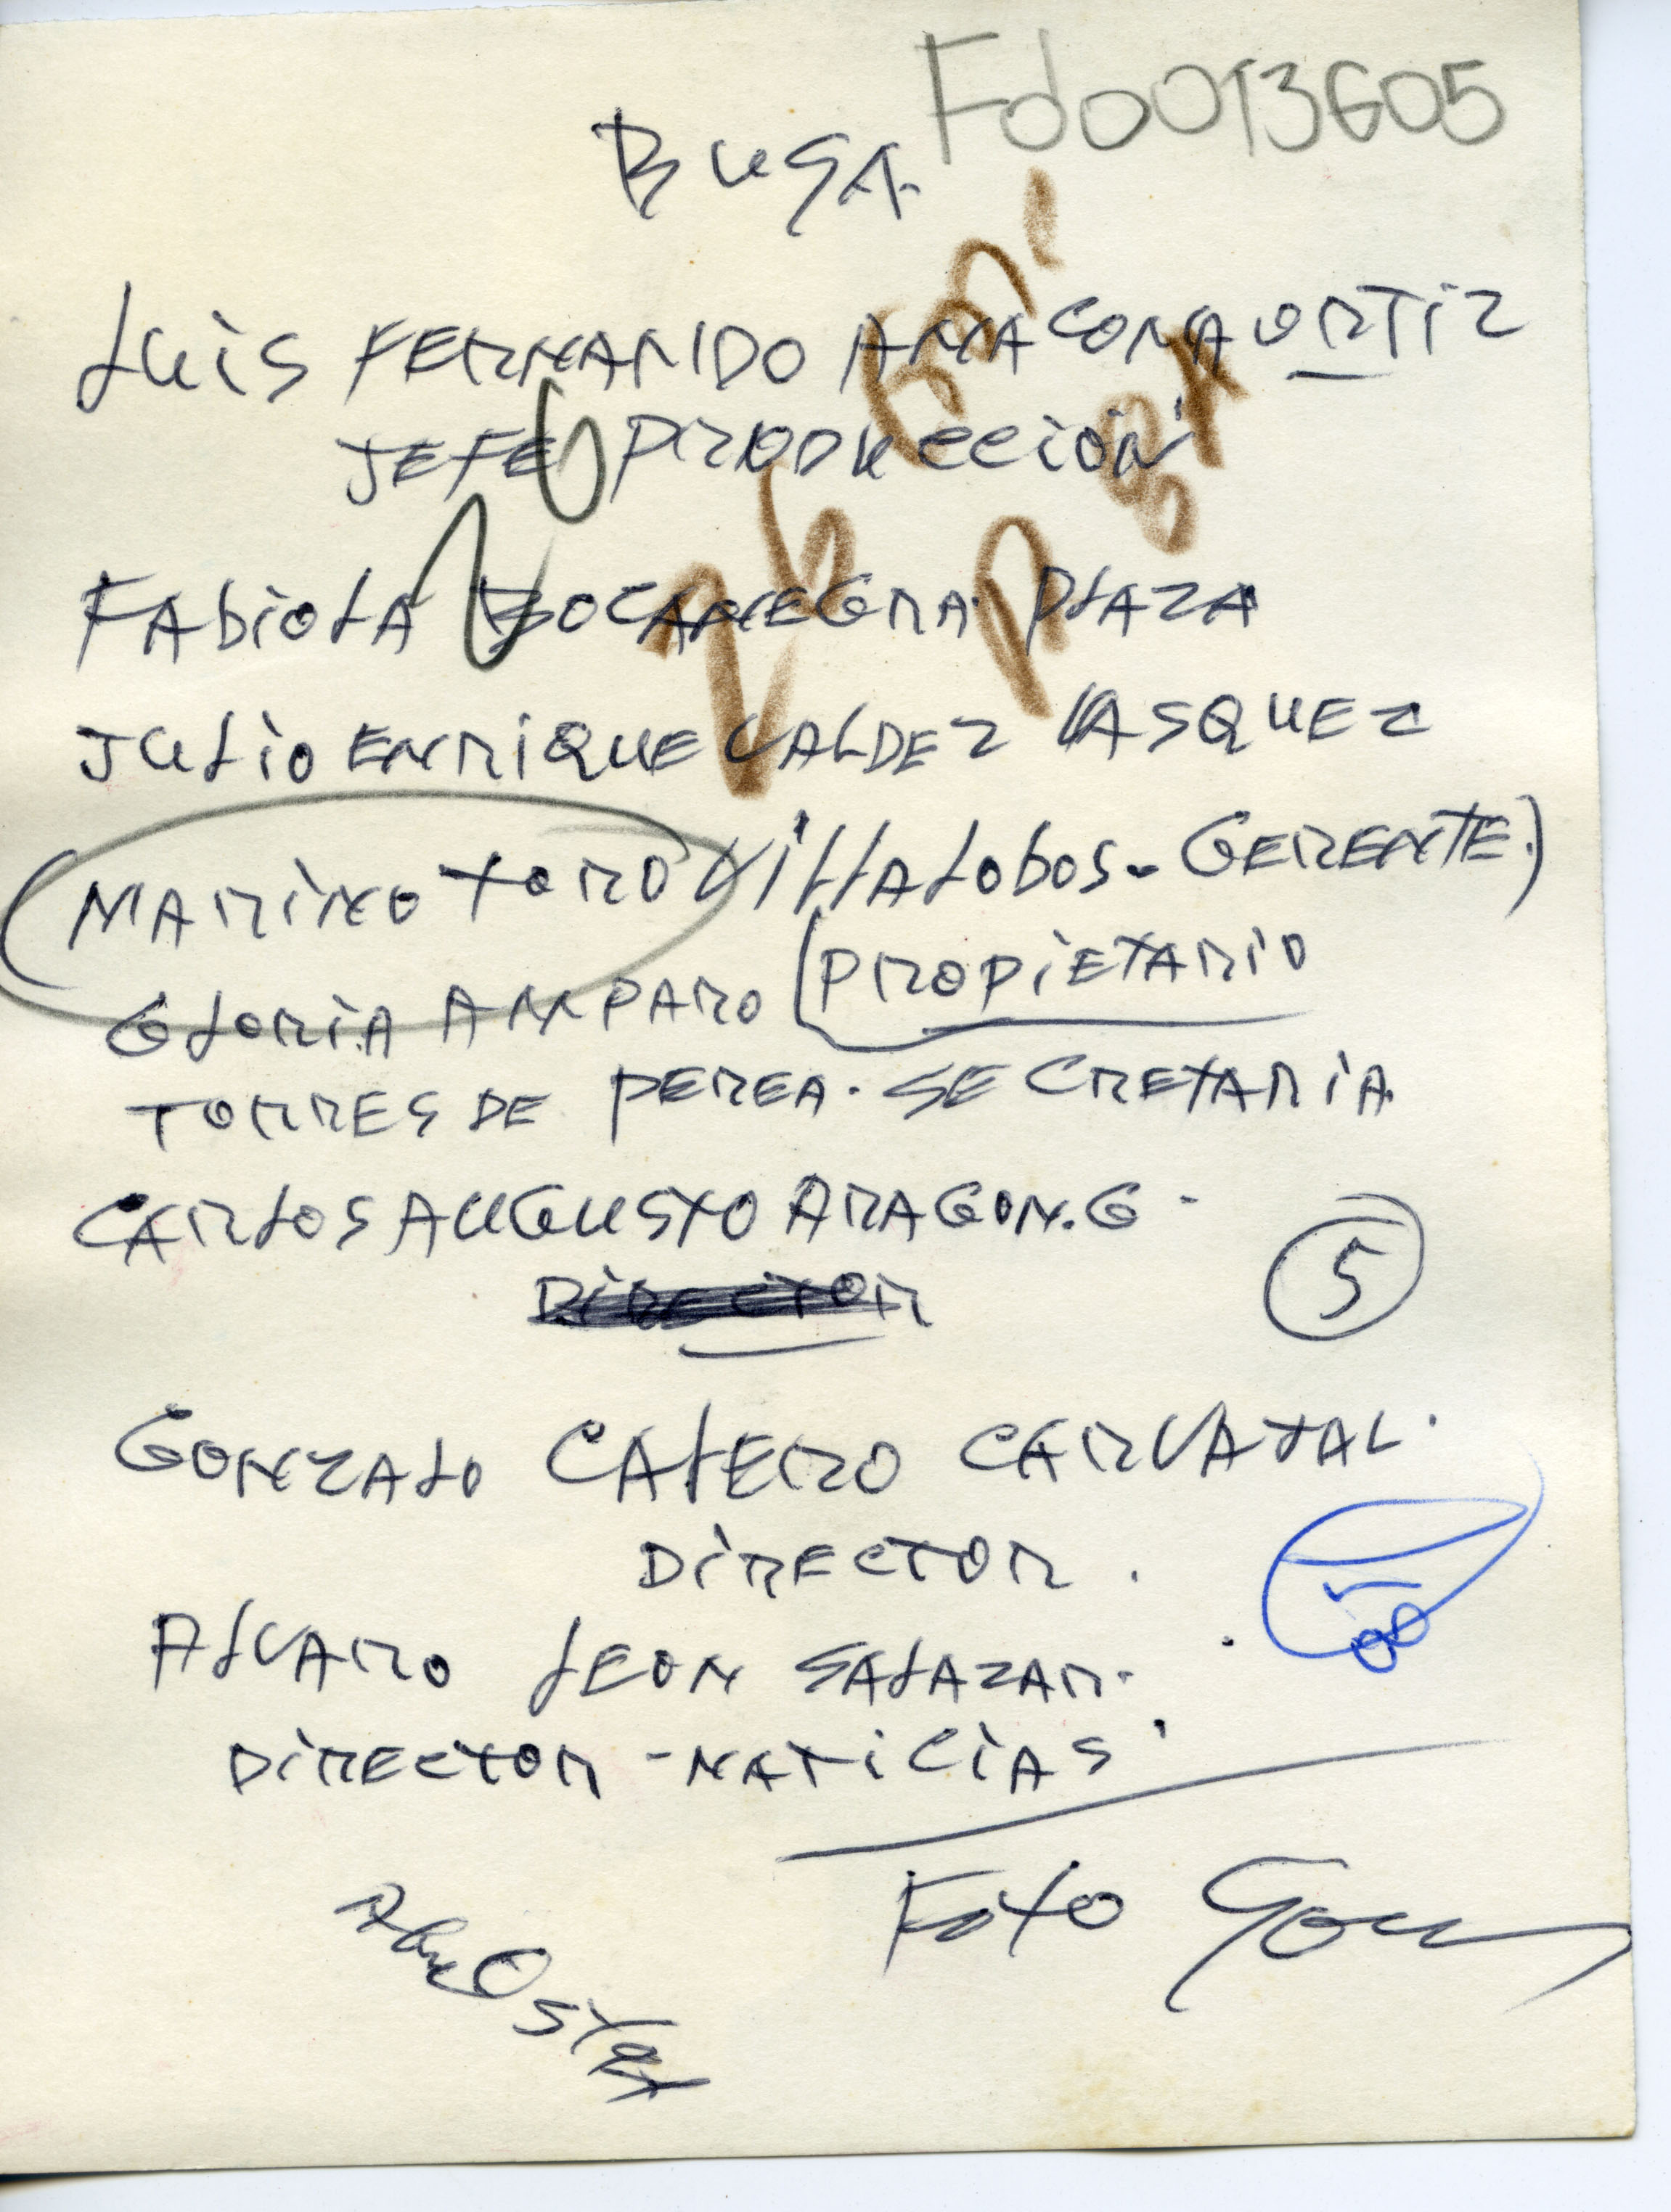 Fd0013605
BUGA.
LUIS FERNANDO ANACONA ORTIZ
JEFE PRODUCCION
FABIOLA BOCANEGRA PLAZA
JULIO ENRIQUE VALDEZ VASQUEZ
(MARINO TORO VILLALOBOS - GERENTE)
(PROPIETARIO
GLORIA AMPARO
TORRES DE PEREA. SECRETARIA
CARLOS AUGUSTO ARAGON.G -
DIRECTOR
5
GONZALO CALERO CARVAJAL.
DIRECTOR.
ALVARO LEON SALAZAR.
DIRECTOR - NATICIAS
FOTO